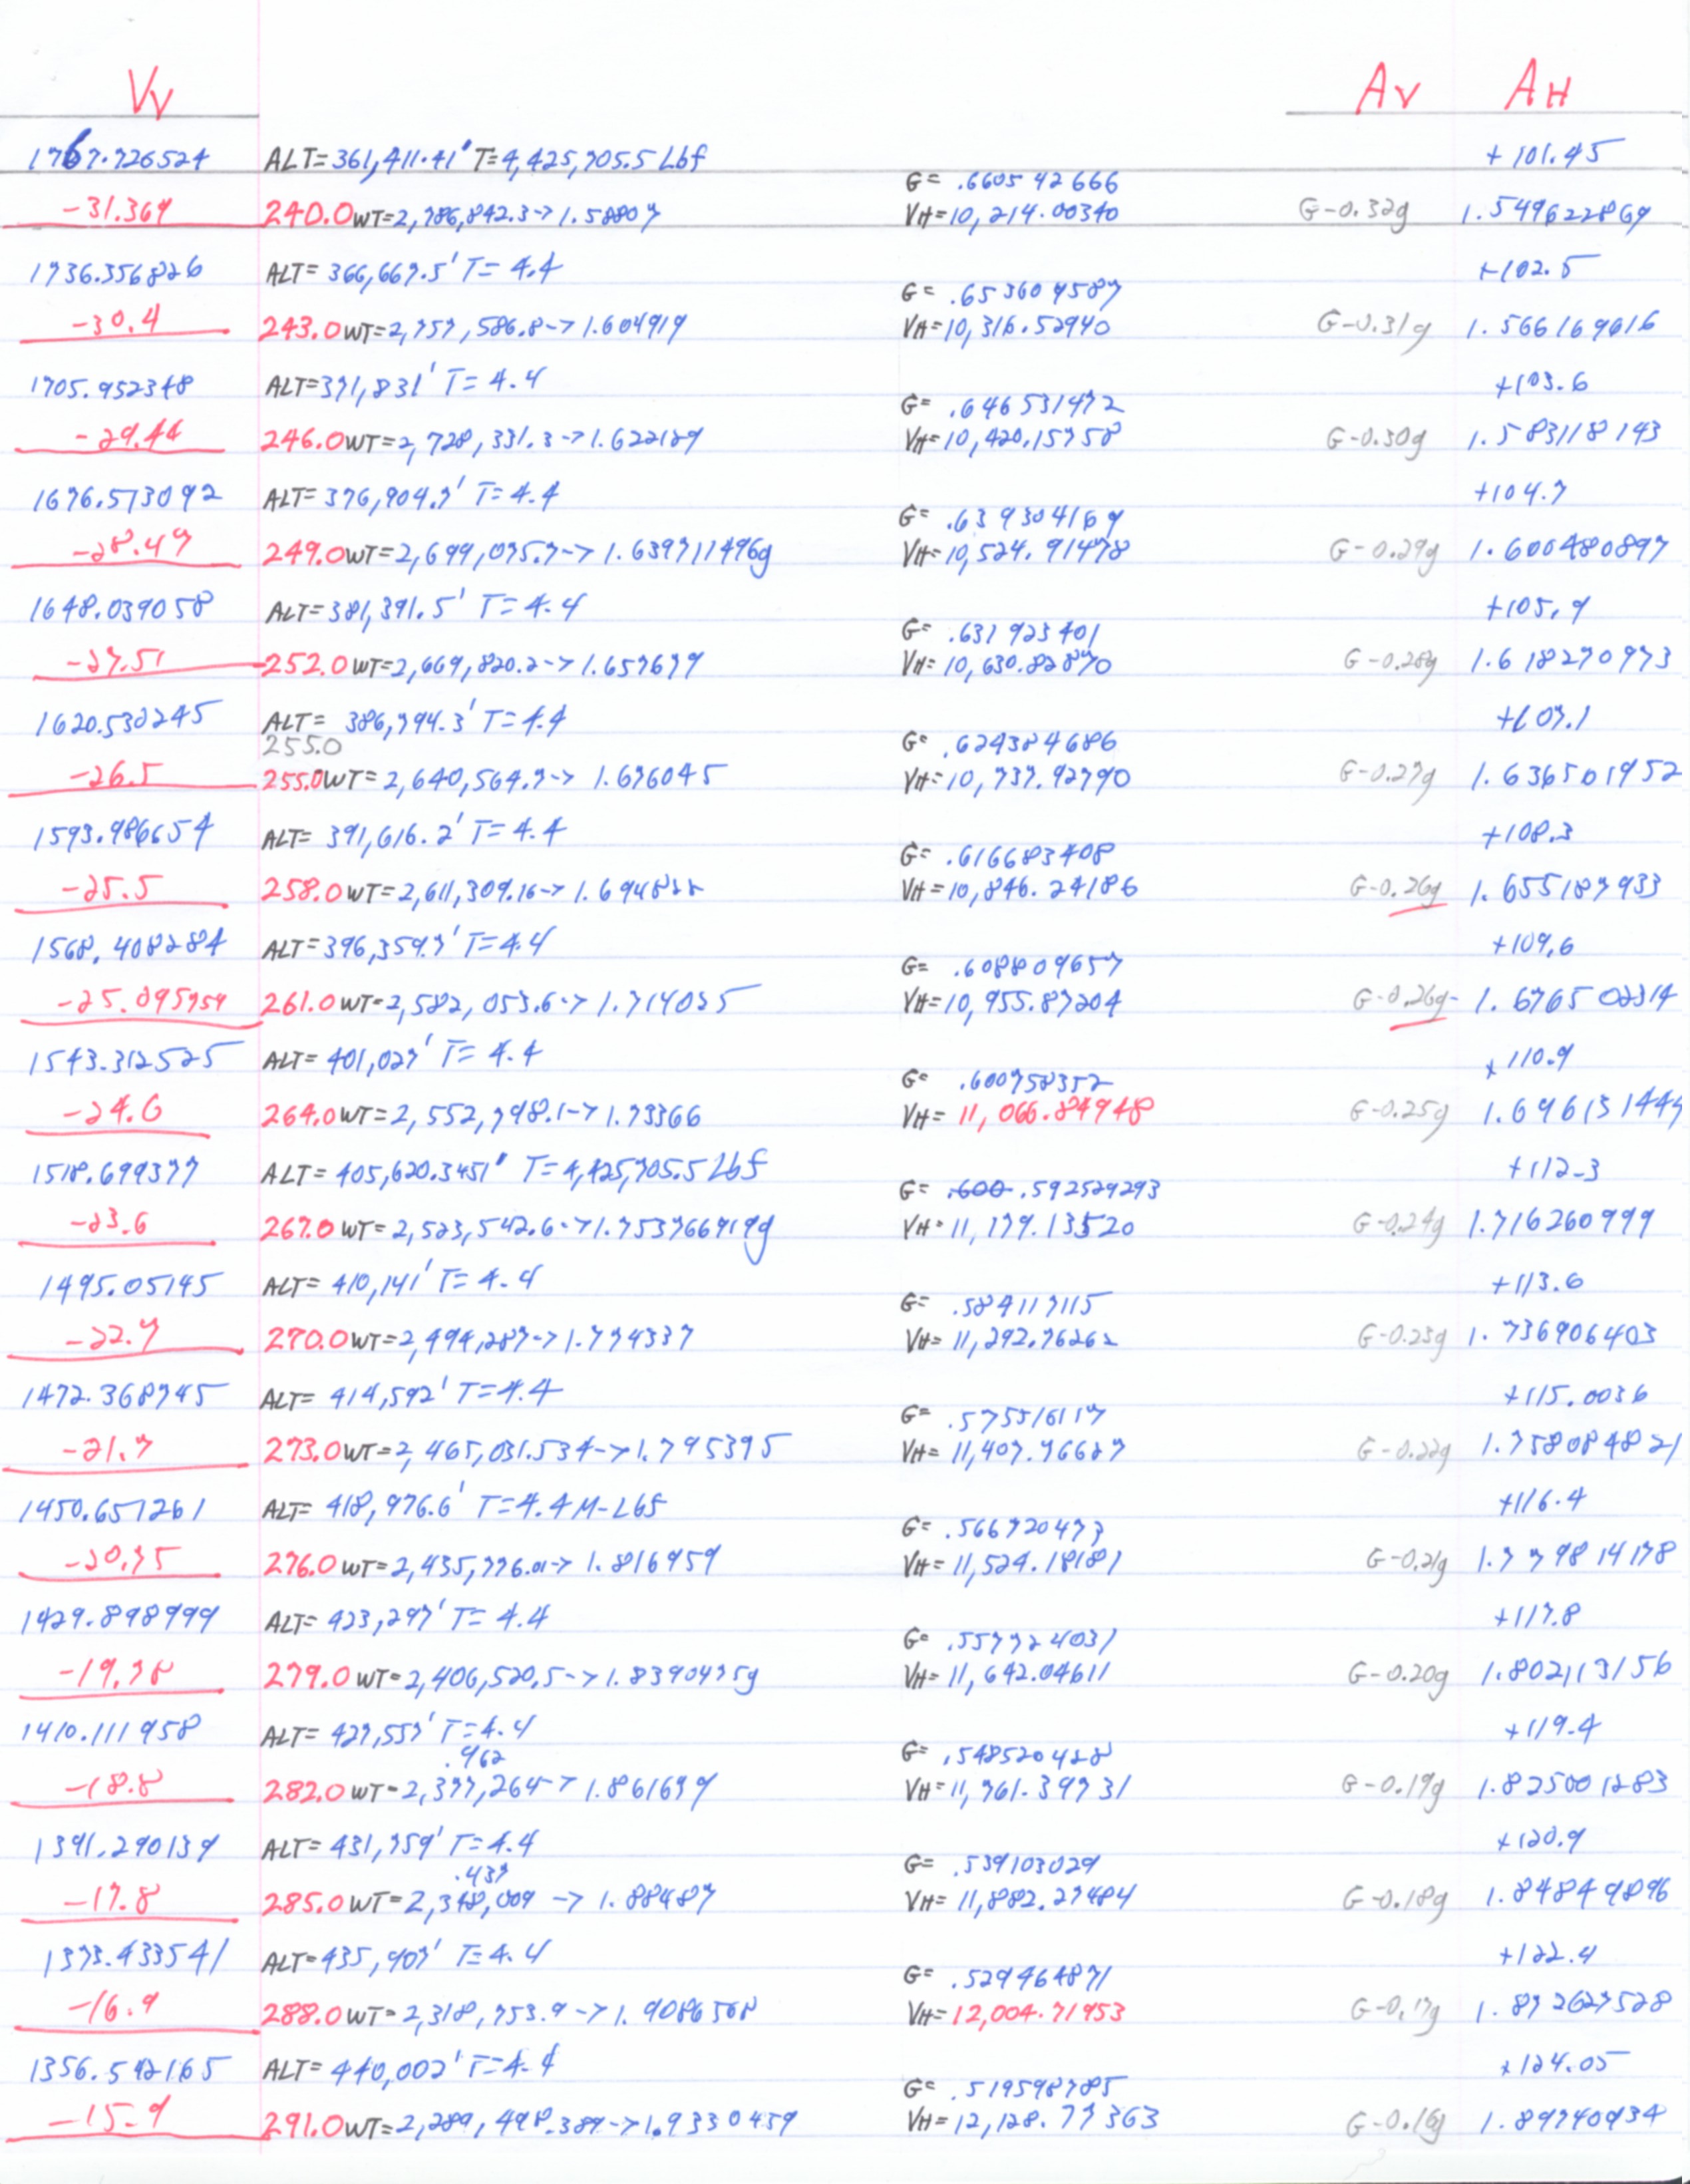 Vv Av AH
1767.726524 ALT=361,411.41' T=4,425,705.5 Lbf +101.45
G= .660542666
-31.369 240.0 WT=2,786,842.3-> 1.58807 VH=10,214.00340 G-0.32g 1.549622869
1736.356826 ALT= 366,667.5' T= 4.4 +102.5
G= .653604587
-30.4 243.0 WT=2,757,586.8-> 1.604919 VH=10,316.52940 G-0.31g 1.566169616
1705.952348 ALT=371,831' T= 4.4 +103.6
G= .646531472
-29.44 246.0 WT=2,728,331.3->1.622129 VH=10,420.15758 G-0.30g 1.583118143
1676.513092 ALT= 376,904.7' T= 4.4 +104.7
G= .639304169
-28.47 249.0 WT=2,699,075.7-> 1.639711496g VH=10,524.91478 G-0.29g 1.600480897
1648.039058 ALT=381,391.5' T= 4.4 +105.9
G= .631923401
-27.51 252.0 WT=2,669,820.2-> 1.657679 VH= 10,630.82870 G-0.28g 1.618270973
1620.530245 ALT= 386,794.3' T= 4.4 +107.1
255.0 G= .624384686
-26.5 255.0 WT= 2,640,564.7-> 1.676045 VH=10,737.92790 G-0.27g 1.636501952
1593.986654 ALT= 391,616.2' T= 4.4 +108.3
G= .616683408
-25.5 258.0 WT=2,611,309.16-> 1.694822 VH=10,846.24186 G-0.26g 1.655187933
1568.408284 ALT=396,359.7' T=4.4 +109.6
G= .608809657
-25.095759 261.0 WT=2,582,053.6-> 1.714025 VH=10,955.87204 G-0.26g- 1.676502314
1543.312525 ALT= 401,027' T= 4.4 +110.9
G= .600758352
-24.6 264.0 WT= 2,552,798.1-> 1.73366 VH= 11,066.84948 G-0.25g 1.696131449
1518.699377 ALT= 405,620.3451' T=4,425,705.5 Lbf +112.3
G= .600 .592529293
-23.6 267.0 WT= 2,523,542.6->1.753766919g VH=11,179.13520 G-0.24g 1.716260999
1495.05145 ALT= 410,141' T= 4.4 +113.6
G= .584117115
-22.7 270.0 WT=2,494,287-> 1.774337 VH= 11,292.76262 G-0.23g 1.736906403
1472.368745 ALT= 414,592' T=4.4 +115.0036
G= .575516117
-21.7 273.0 WT=2,465,031.534->1.795395 VH= 11,407.76627 G-0.22g 1.758084821
1450.651261 ALT= 418,976.6' T=4.4 M-Lbf +116.4
G= .566720473
-20.75 276.0 WT=2,435,776.01-> 1.816959 VH= 11,524.18181 G-0.21g 1.779814178
1429.898999 ALT= 423,297' T= 4.4 +117.8
G= .557724031
-19.78 279.0 WT=2,406,520.5-> 1.8390475g VH= 11,642.04611 G-0.20g 1.802113156
1410.111958 ALT= 427,557' T=4.4 +119.4
.962 G= .548520428
-18.8 282.0 WT=2,377,264-> 1.861679 VH=11,761.39731 G-0.19g 1.825001283
1391.290139 ALT= 431,759' T=4.4 +120.9
.437 G= .539103029
-17.8 285.0 WT=2,348,009 -> 1.88487 VH= 11,882.27484 G-0.18g 1.848499896
1373.433541 ALT=435,907' T= 4.4 +122.4
G= .529464871
-16.9 288.0 WT=2,318,753.9-> 1.9086568 VH=12,004.71953 G-0.17g 1.872627528
1356.542165 ALT= 440,002' T=4.4 +124.05
G= .519598785
-15.9 291.0 WT=2,289,498.389->1.9330459 VH=12,128.77363 G-0.16g 1.89740934